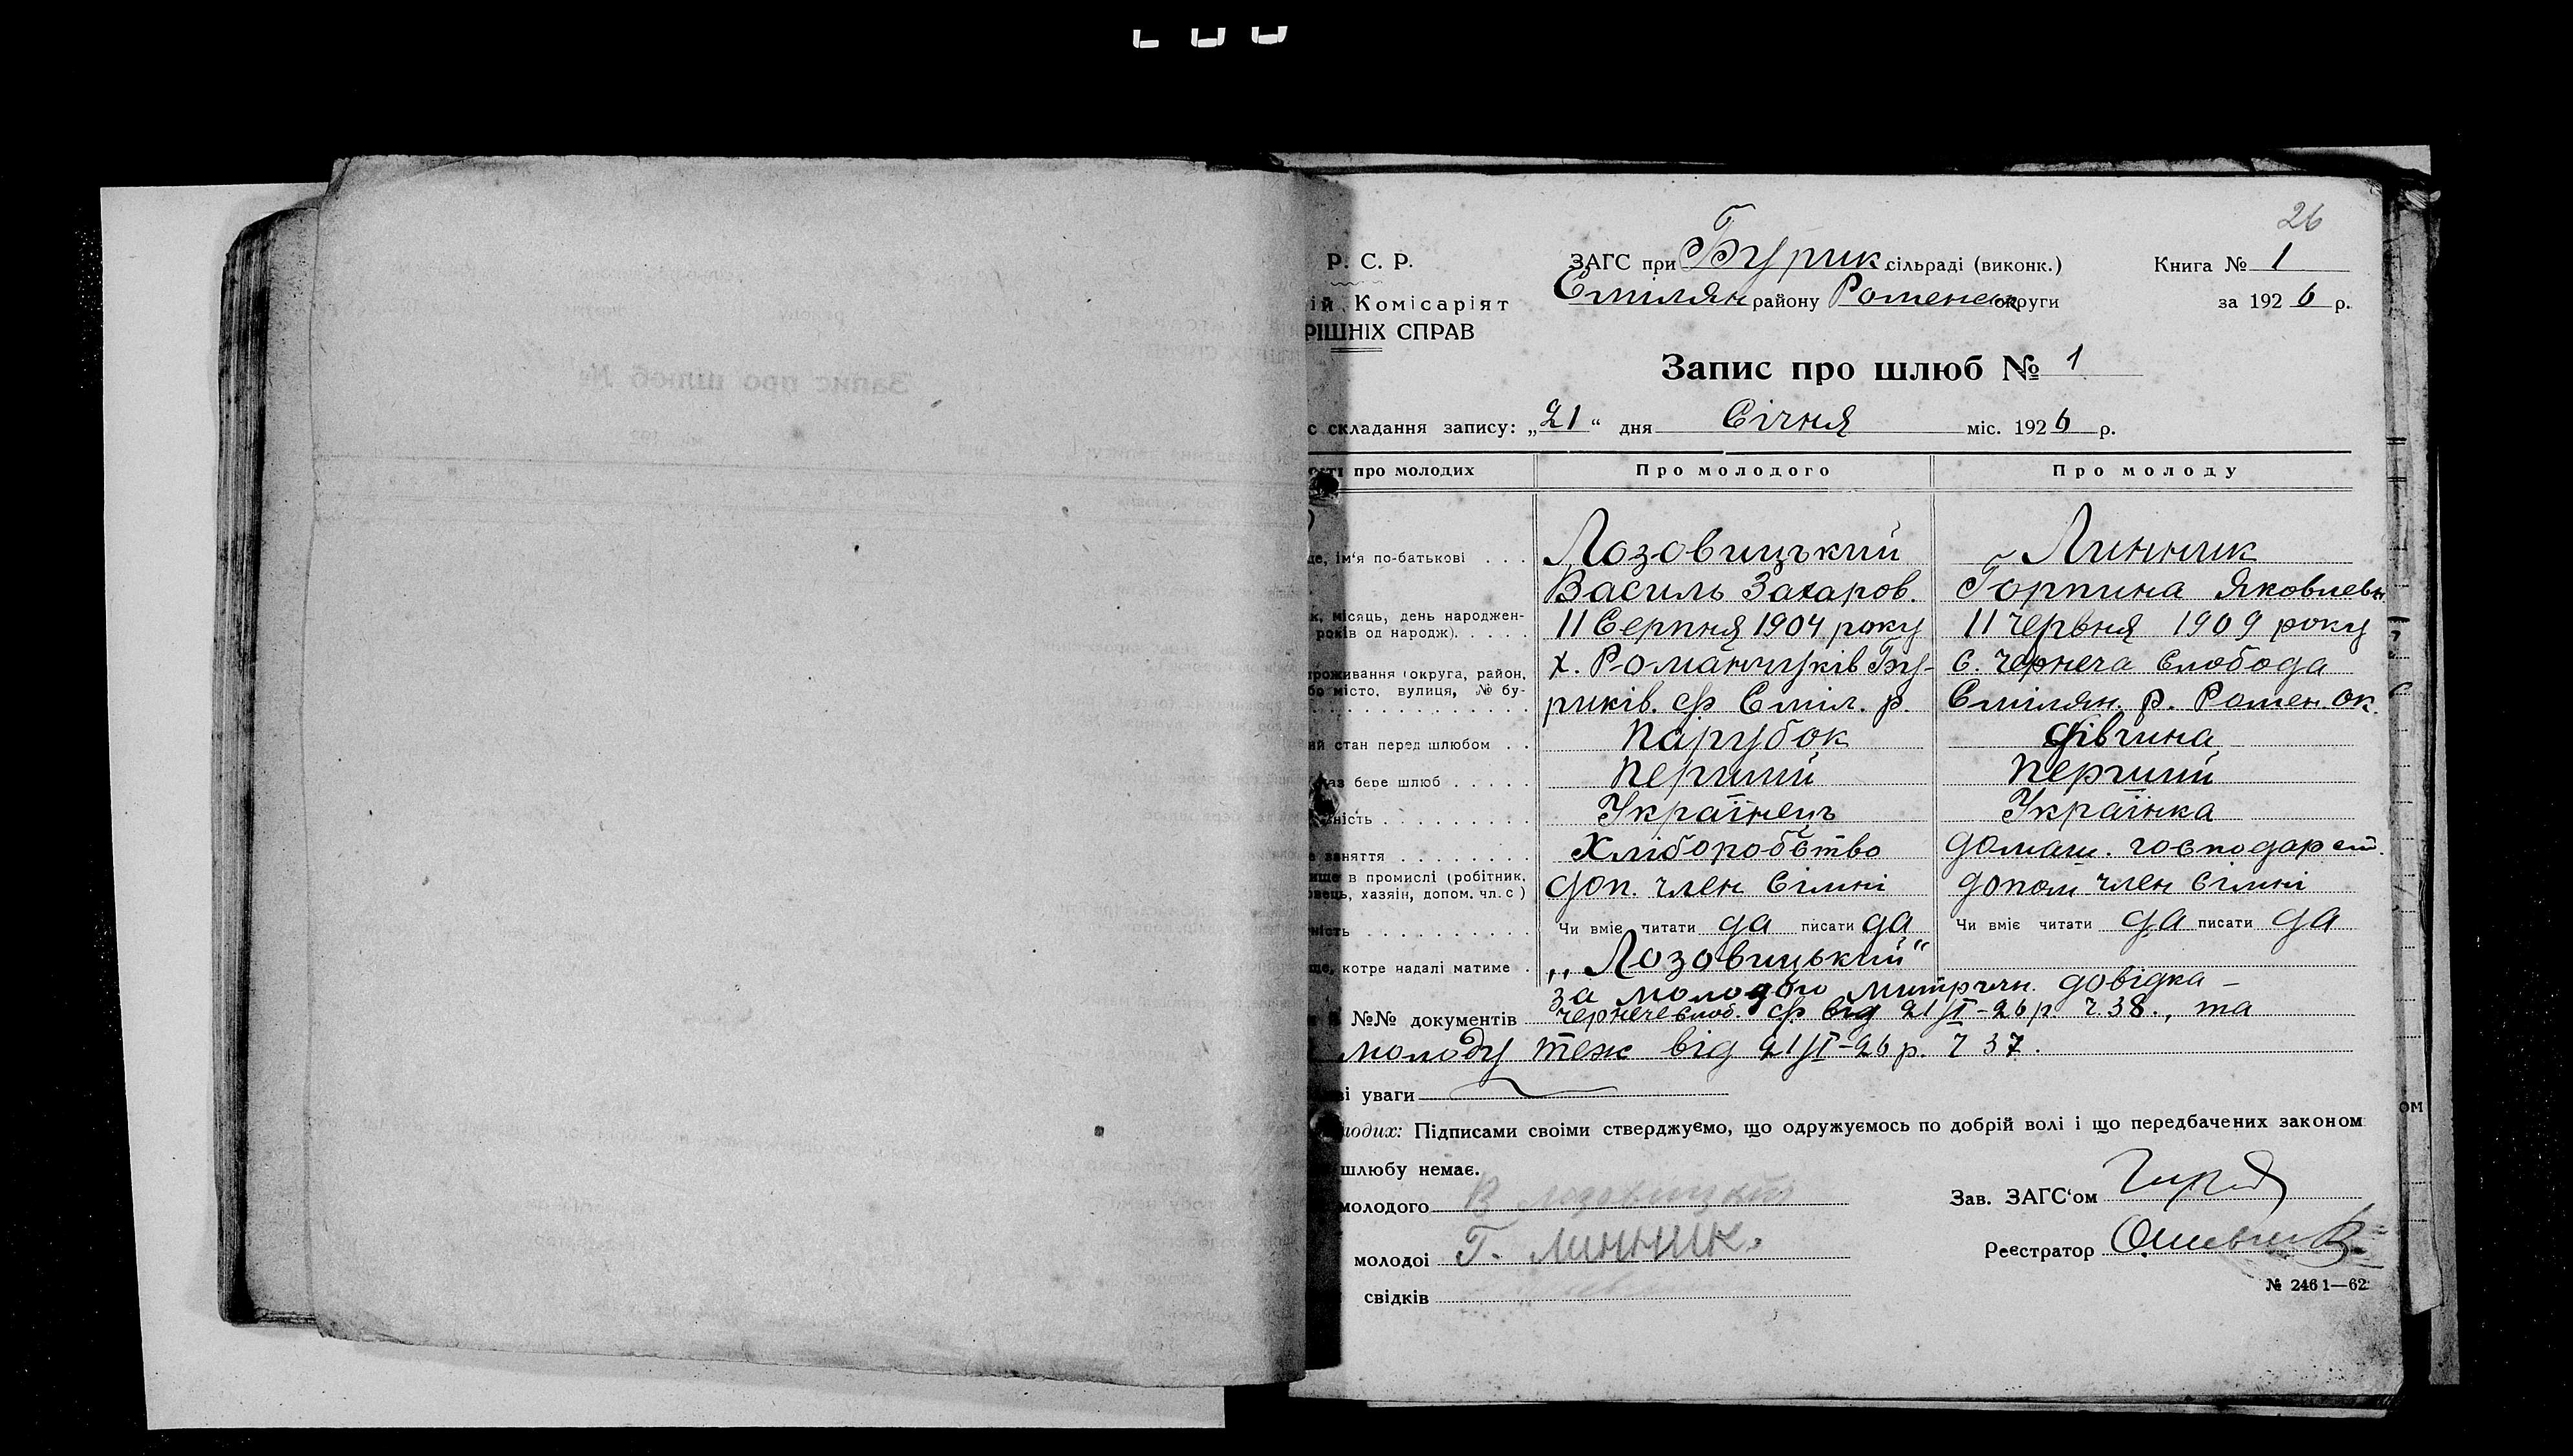 26
Р. С. Р.
ЗАГС при Бурик. сільраді (виконк.)
Книга № 1
ій Комісаріят
Смілян району Роменск округи
за 1926 р.
РІШНІХ СПРАВ
Запис про шлюб № 1
с складання запису: „21“ дня Січня міс. 1926 р.
про молодих
Про молодого
Про молоду
це, ім'я по-батькові . . .
Лозовицький
Линник
Василь Захаров.
Горпина Яковлевн.
к, місяць, день народжен-
років од народж). . . . .
11 Серпня 1904 року
11 Червня 1909 року
проживання (округа, район,
х. Романчуків Бу-
с. Чернеча Слобода
бо місто, вулиця, № бу-
риків. с/р Сміл. р.
Смілян. р. Ромен. ок.
ий стан перед шлюбом . .
Парубок
Дівчина
раз бере шлюб . . . . .
Перший
Перший
ність . . . . . . . . .
Українець
Українка
е заняття . . . . . . . .
Хліборобство
домаш. господарст.
ище в промислі (робітник,
вець, хазяін, допом. чл. с)
доп. член сімні
допом член сімні
ність . . . . . . . . . .
Чи вміє читати да писати да
Чи вміє читати да писати да
ще, котре надалі матиме .
„Лозовицький“
за молодого митричн. довідка –
№№ документів Чернечеслоб. с/р від 21/I-26 р ч. 38., та
молоду теж від 21/I-26 р. ч 37.
ві уваги
лодих: Підписами своіми стверджуємо, що одружуємось по добрій волі і що передбачених законом
шлюбу немає.
молодого В Лозовицький
Зав. ЗАГС‘ом
молодоі Г. Линник.
Реєстратор
№ 2461—62
свідків
ом